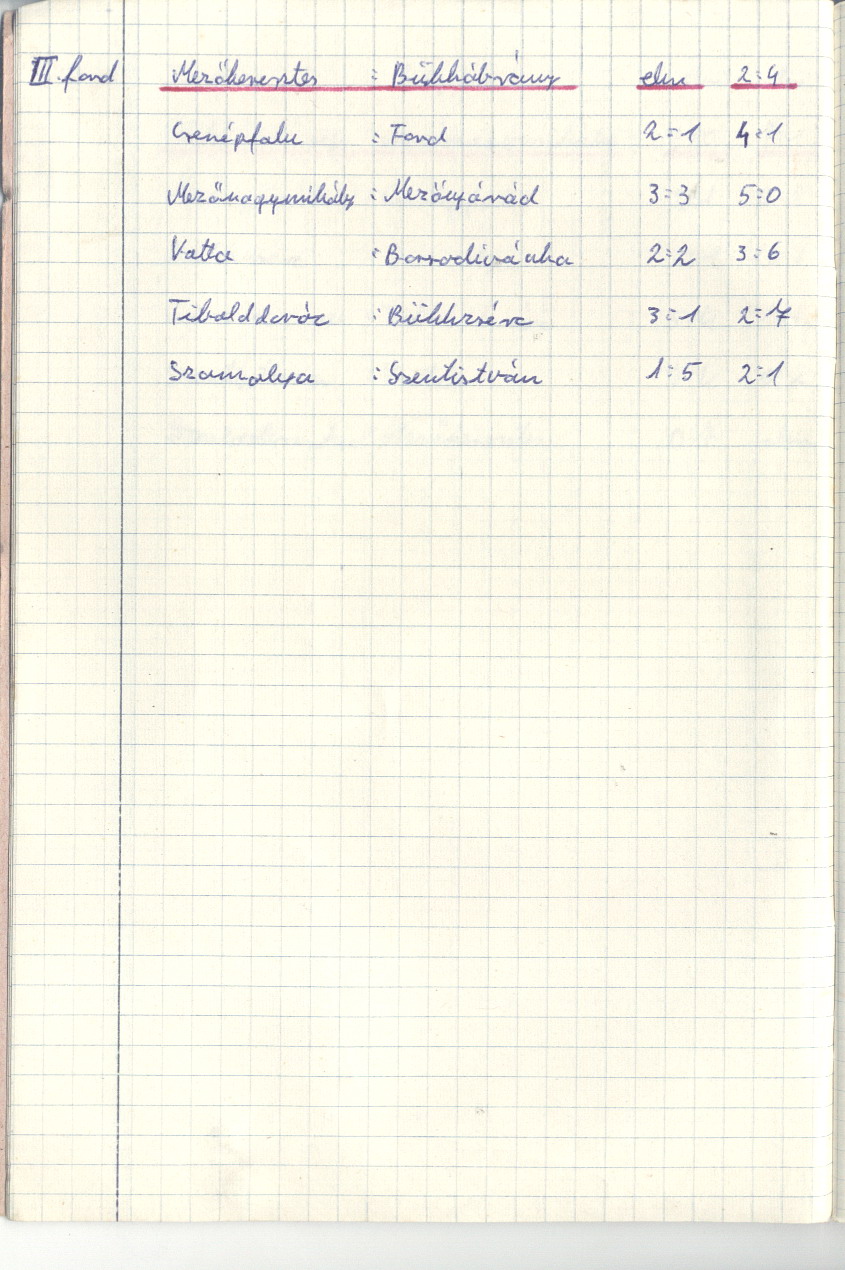 III. ford Mezőkeresztes : Bükkábrány elm 2:4
Cserépfalu : Ford 2:1 4:1
Mezőnagymihály : Mezőnyárád 3:3 5:0
Vatta : Borsodivánka 2:2 3:6
Tibolddaróc : Bükkzsérc 3:1 2:7
Szomolya : Szentistván 1:5 2:1